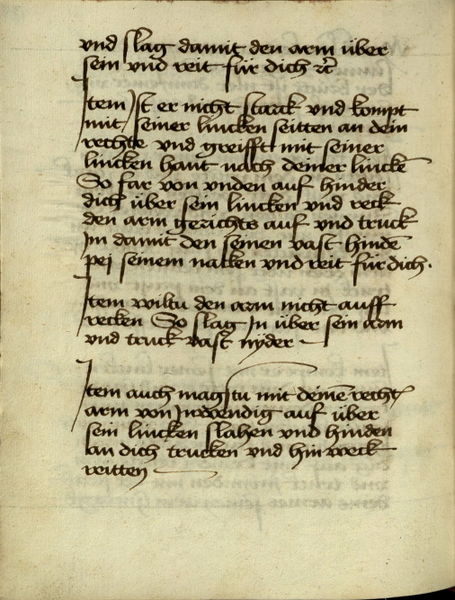 vnd slag damit den arm über
sein vnd reit für dich ꝛc
Item Ist er nicht starck vnd kompt
mit seiner lincken seitten an dein
rechte vnd greifft mit seiner
lincken hant nach deiner lincke̅
So far von vnden auf hinder
dich über sein lincken vnd reck
den arm gerichts auf vnd truck
Im damit den seinen vast hinde̅
pei seinem nacken vnd reit für dich.
Item wiltu den arm nicht auff
recken So slag In über sein arm
vnd truck vast nyder
Item auch magstu mit deine̅ recht̅
arm von Inwendig auf über
sein lincken slahen vnd hinden
an dich trucken vnd hin weck
reitten